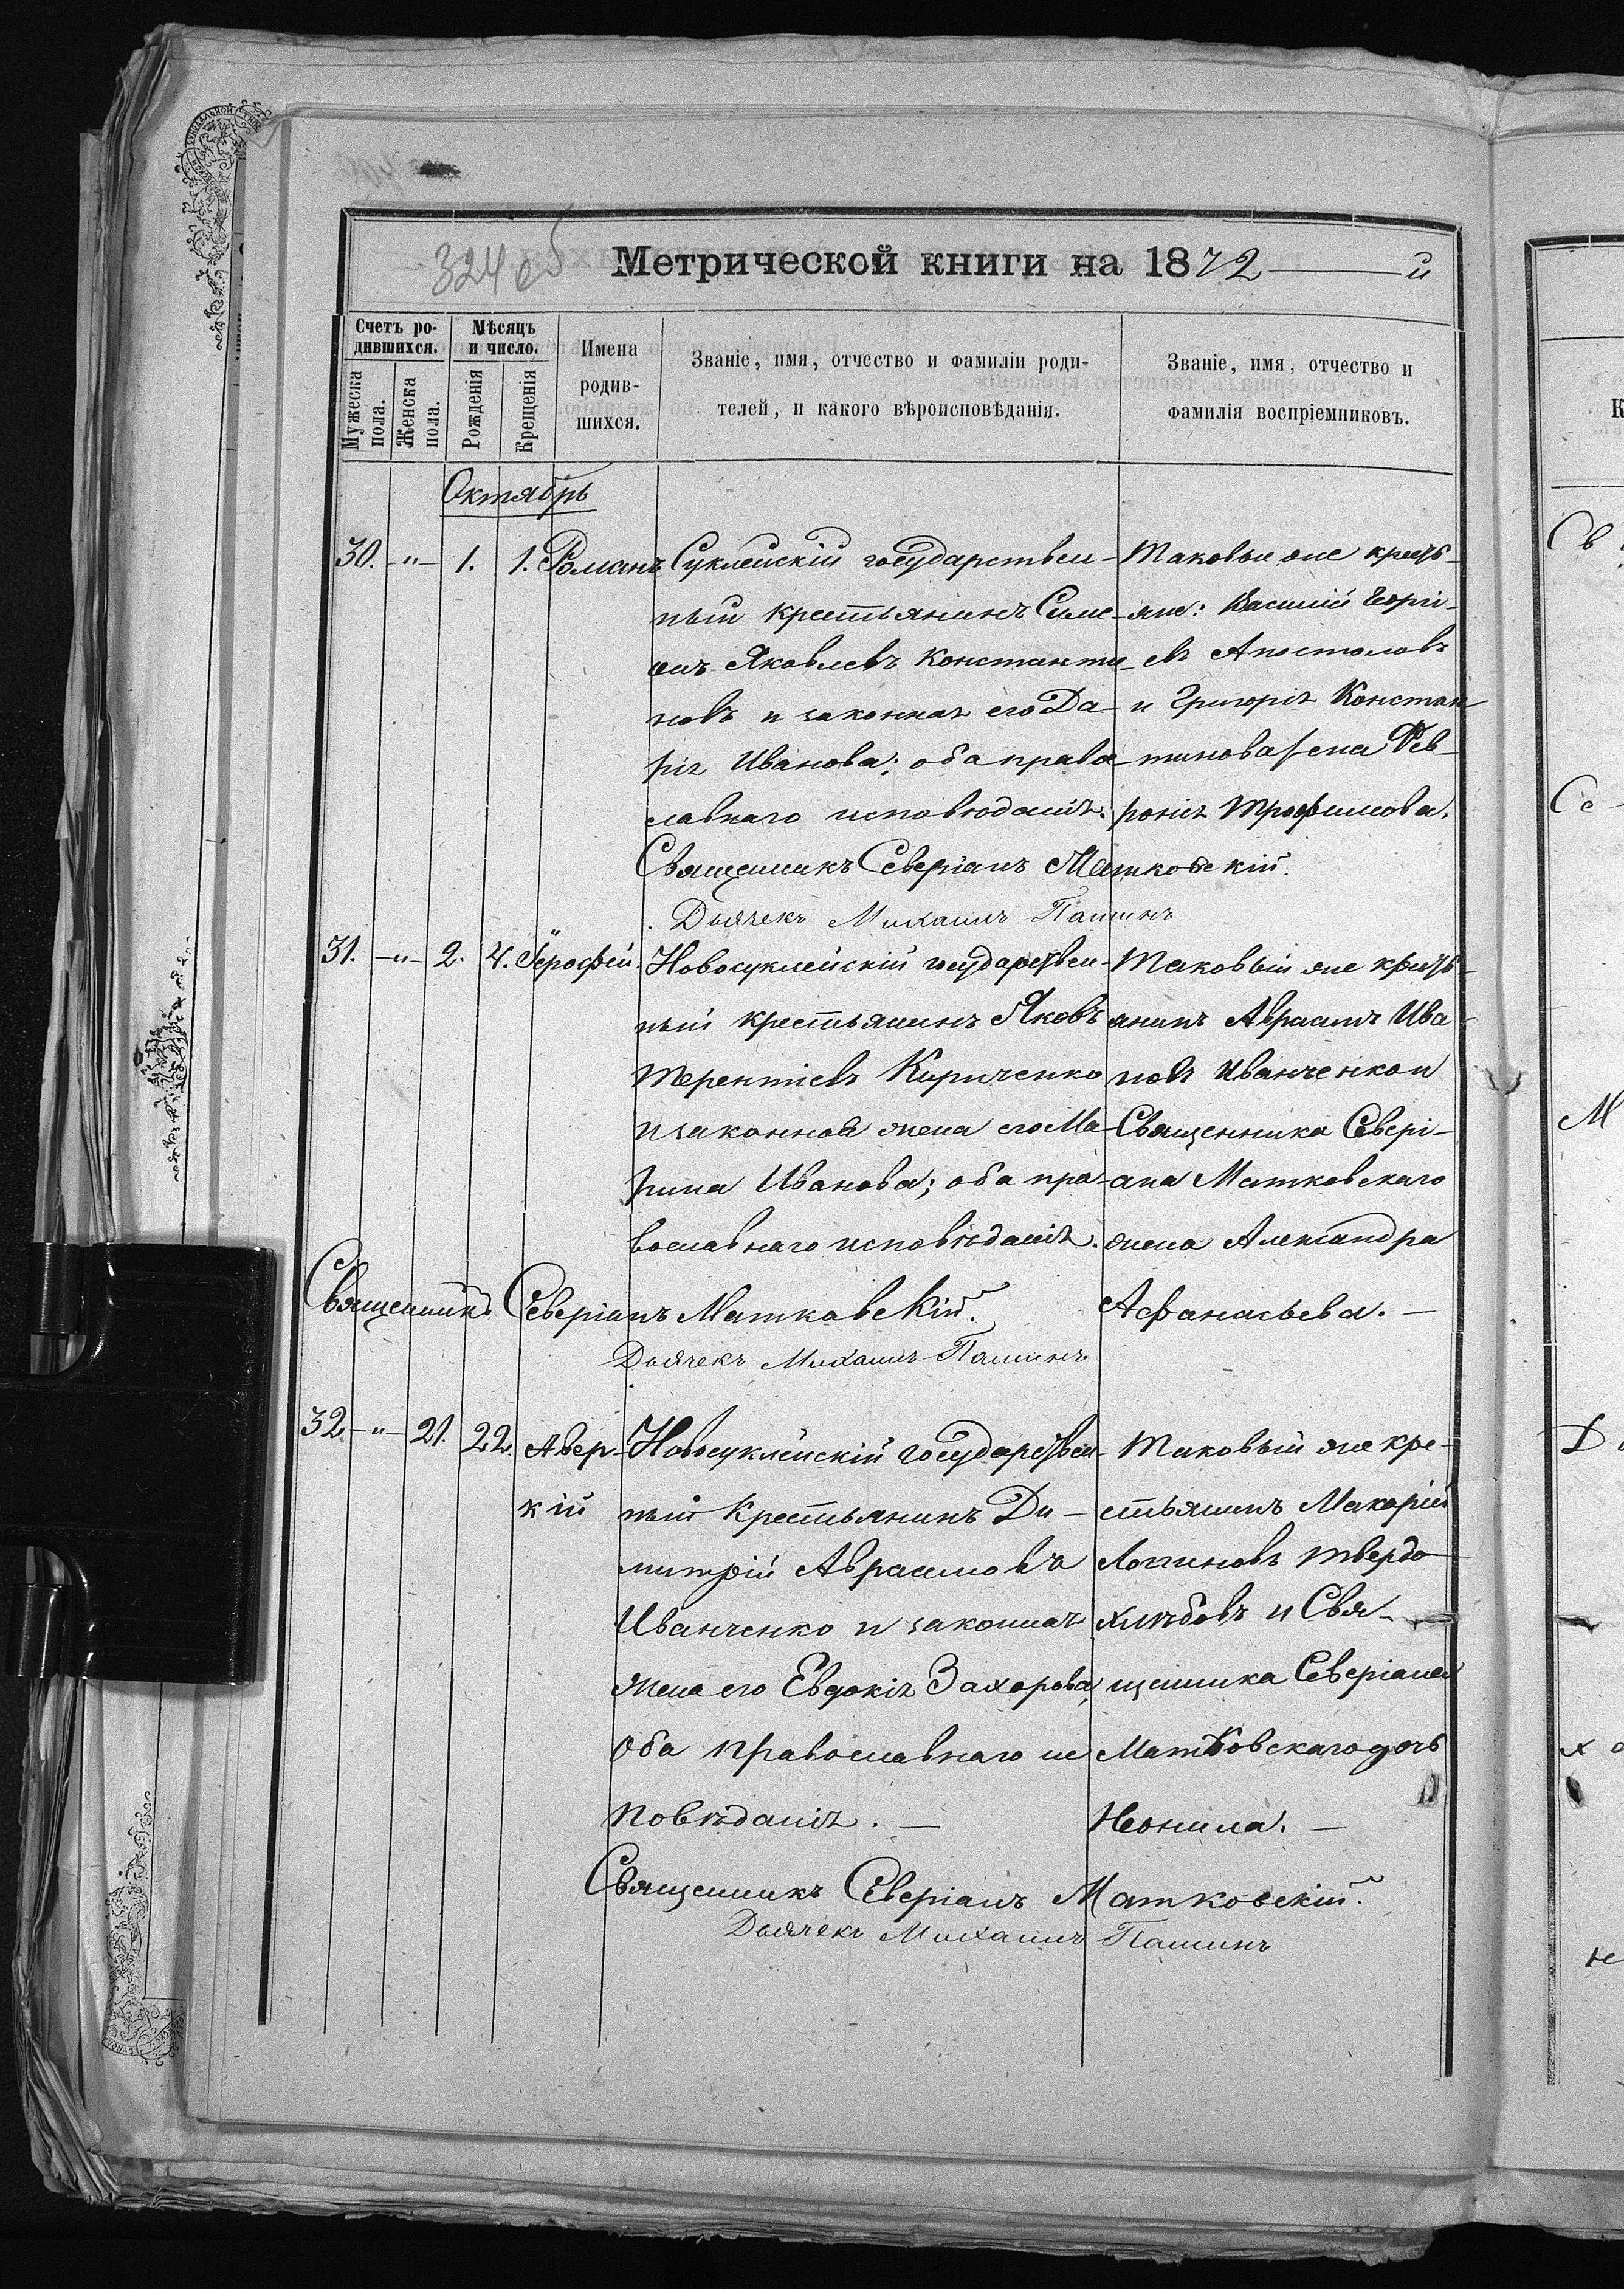 324 об
Метрической книги на 1872 — й
Счетъ родившихся.
Мѣсяцъ и число.
Имена родив-
шихся.
Званіе, имя, отчество и фамиліи роди-
телей, и какого вѣроисповѣданія.
Званіе, имя, отчество и
фамилія воспріемниковъ.
Мужеска пола.
Женска пола.
Рожденія
Крещенія
Октябрь
30. -"- 1. 1. Романъ
Суклейскій государствен-
ный крестьянинъ Симе-
онъ Яковлевъ Константи-
новъ и законная его Да-
рія Иванова; оба право-
славнаго исповѣданія.
Таковые же кресть-
яне: Василій Георгі-
евъ Апостоловъ
и Григорія Констан-
тинова жена Фев-
ронія Трофимова.
Священникъ Северіанъ Матковскій.
Дьячекъ Михаилъ Пашинъ
31. -"- 2. 4. Іерофей.
Новосуклейскій государствен-
ный крестьянинъ Яковъ
Терентіевъ Кириченко
и законная жена его Ма-
рина Иванова; оба пра-
вославнаго исповѣданія.
Таковый же кресть-
янинъ Авраамъ Ива-
новъ Иванченко и
Священника Севері-
ана Матковскаго
жена Александра
Афанасьева. —
Священникъ Северіанъ Матковскій.
Дьячекъ Михаилъ Пашинъ
32 -"- 21. 22. Авер-
кій
Новосуклейскій государствен-
ный Крестьянинъ Ди-
митрій Авраамовъ
Иванченко и законная
жена его Евдокія Захарова,
оба православнаго ис
повѣданія. —
Таковый же кре-
стьянинъ Макарій
Логиновъ Твердо-
хлѣбовъ и Свя-
щенника Северіана
Матковскаго дочь
Неонила. —
Священникъ Северіанъ Матковскій.
Дьячекъ Михаилъ Пашинъ